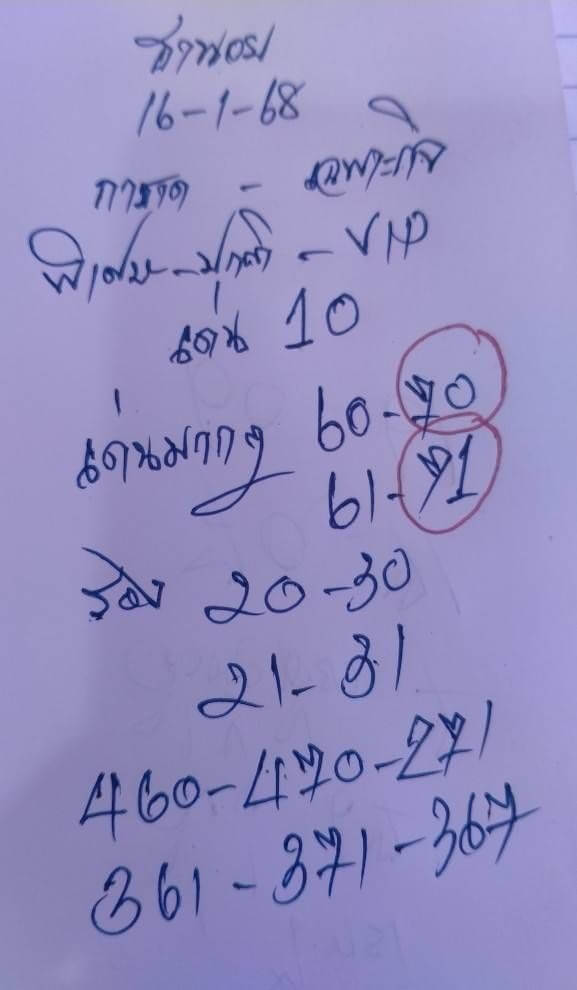 ฮานอย
16-1-68
กาชาด - เฉพาะกิจ
พิเศษ-ปกติ - VIP
เด่น 10
เด่นมากๆ 60-70
61-71
รอง 20-30
21-31
460-470-271
361-371-367